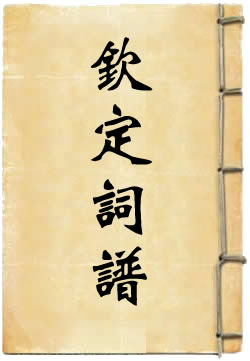 欽定詞譜